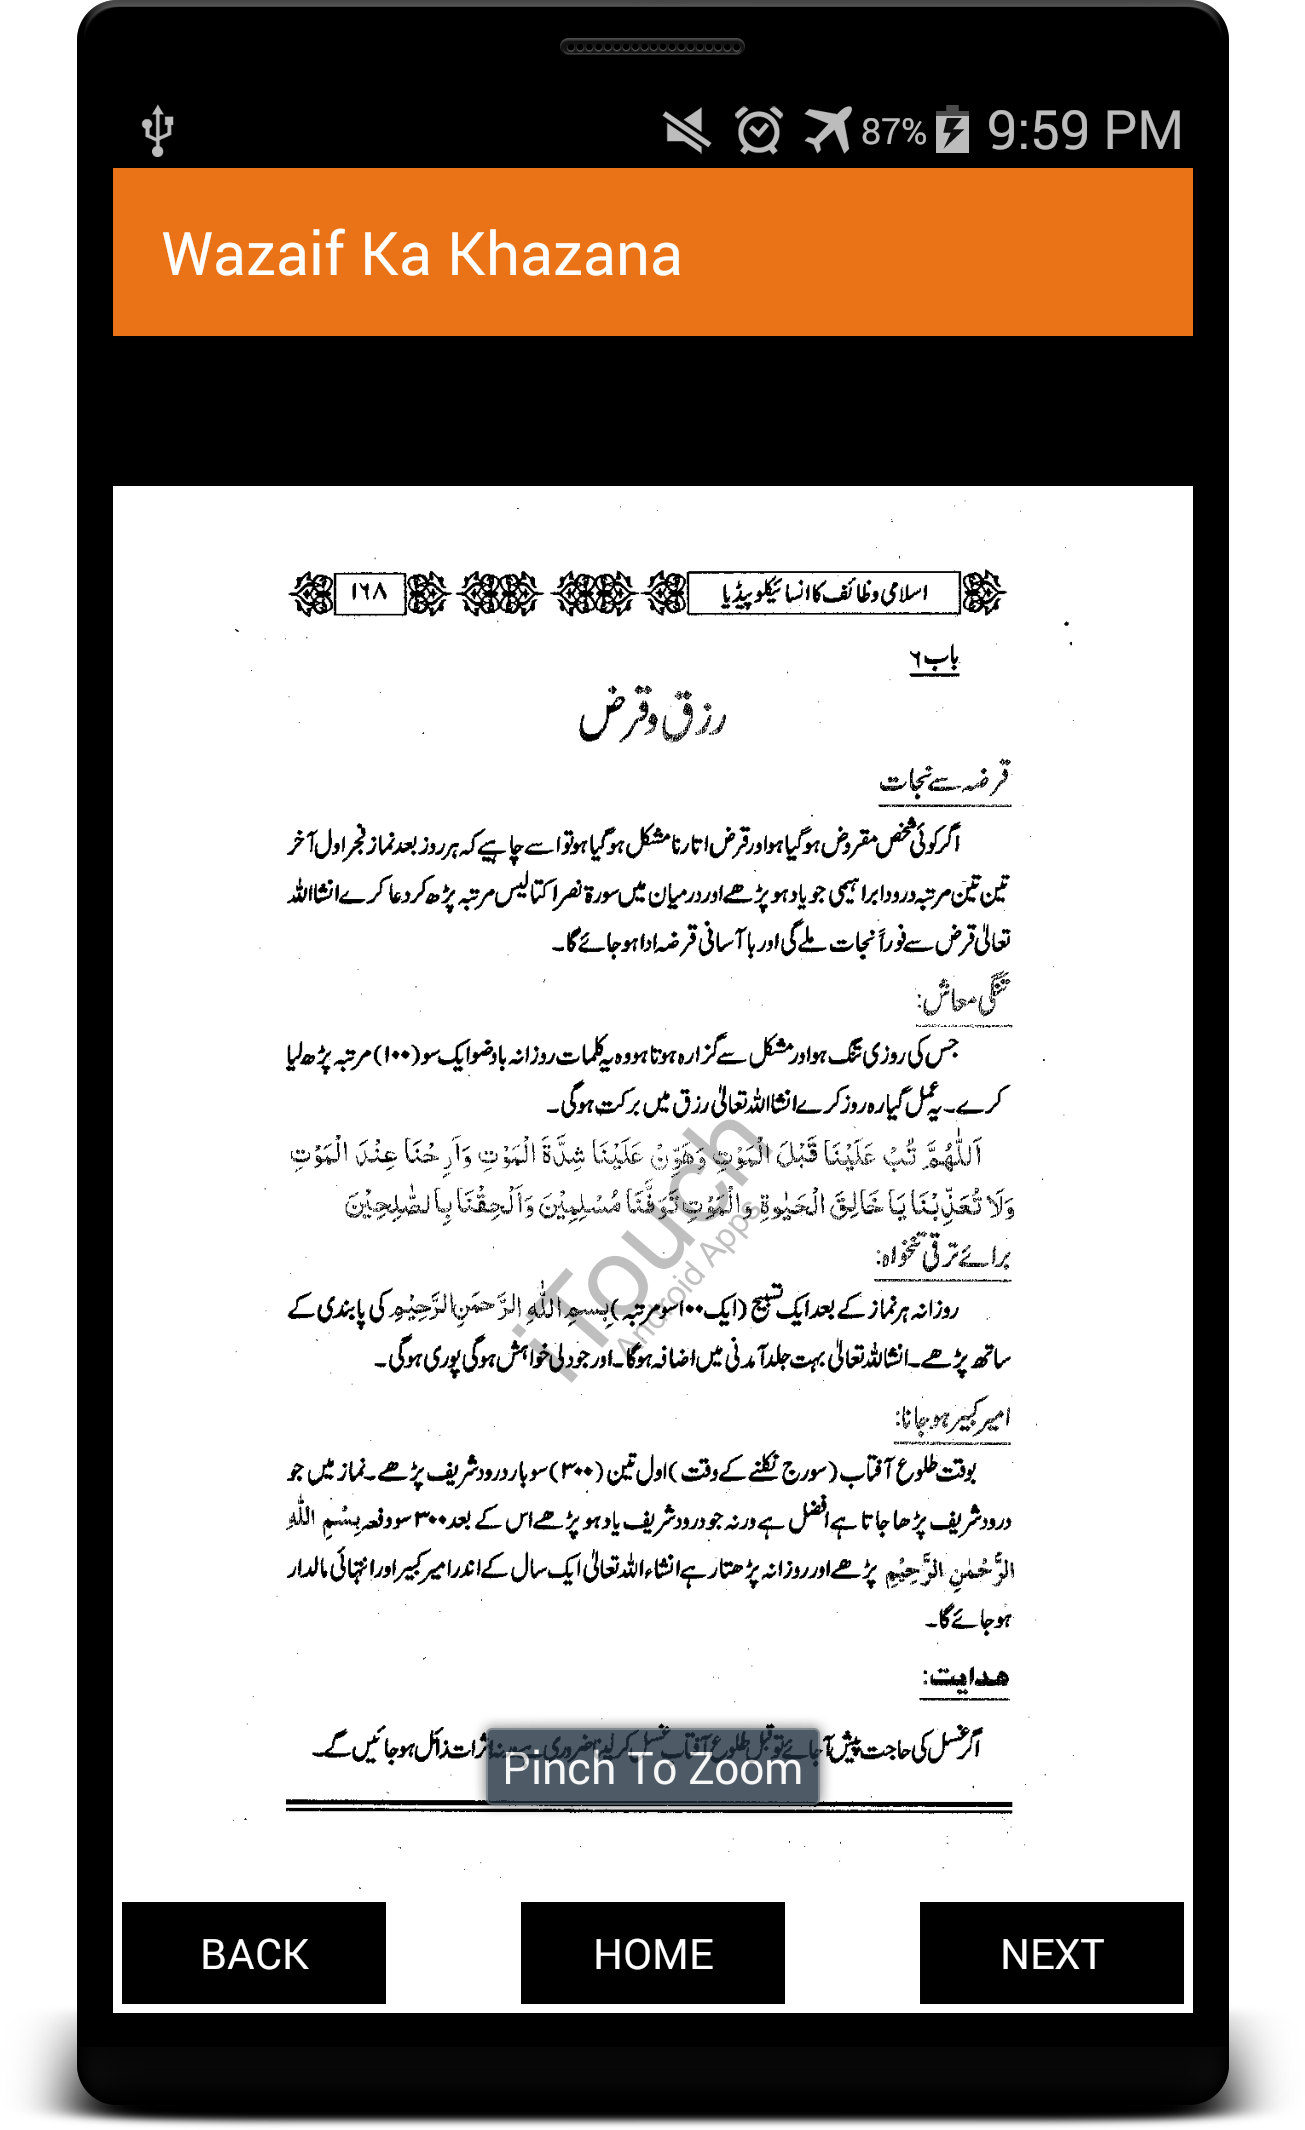 87% 9:59 PM
Wazaif Ka Khazana
اسلامی وظائف کا انسائیکلوپیڈیا ۱۶۸
باب ۶
رزق و قرض
قرضہ سے نجات
اگر کوئی شخص مقروض ہو گیا ہو اور قرض اتارنا مشکل ہو گیا ہو تو اسے چاہیے کہ ہر روز بعد نماز فجر اول آخر
تین تین مرتبہ درود ابراہیمی جو یاد ہو پڑھے اور درمیان میں سورۃ نصر اکتالیس مرتبہ پڑھ کر دعا کرے انشااللہ
تعالیٰ قرض سے فوراً نجات ملے گی اور باآسانی قرضہ ادا ہو جائے گا۔
تنگی معاش:
جس کی روزی تنگ ہو اور مشکل سے گزارہ ہوتا ہو وہ یہ کلمات روزانہ باوضو ایک سو (۱۰۰) مرتبہ پڑھ لیا
کرے۔ یہ عمل گیارہ روز کرے انشااللہ تعالیٰ رزق میں برکت ہوگی۔
اَللّٰهُمَّ تُبْ عَلَيْنَا قَبْلَ الْمَوْتِ وَهَوِّنْ عَلَيْنَا شِدَّةَ الْمَوْتِ وَاَرِحْنَا عِنْدَ الْمَوْتِ
وَلَا تُعَذِّبْنَا يَا خَالِقَ الْحَيٰوةِ وَالْمَوْتِ تَوَفَّنَا مُسْلِمِيْنَ وَاَلْحِقْنَا بِالصّٰلِحِيْنَ
برائے ترقی تنخواہ:
روزانہ ہر نماز کے بعد ایک تسبیح (ایک ۱۰۰ سو مرتبہ) بِسمِ اللهِ الرَّحمَنِ الرَّحِيْمِ کی پابندی کے
ساتھ پڑھے۔ انشاللہ تعالیٰ بہت جلد آمدنی میں اضافہ ہوگا۔ اور جو دلی خواہش ہوگی پوری ہوگی۔
امیر کبیر ہو جانا:
بوقت طلوع آفتاب (سورج نکلنے کے وقت) اول تین (۳۰۰) سو بار درود شریف پڑھے۔ نماز میں جو
درود شریف پڑھا جاتا ہے افضل ہے ورنہ جو درود شریف یاد ہو پڑھے اس کے بعد ۳۰۰ سو دفعہ بِسْمِ اللهِ
الرَّحْمٰنِ الرَّحِيْمِ پڑھے اور روزانہ پڑھتا رہے انشاء اللہ تعالیٰ ایک سال کے اندر امیر کبیر اور انتہائی مالدار
ہو جائے گا۔
ھدایت:
اگر غسل کی حاجت پیش آ جائے تو قبل طلوع آفتاب غسل کر لینا ضروری اثرات ذائل ہو جائیں گے۔
iTouch
Android Apps
Pinch To Zoom
BACK HOME NEXT